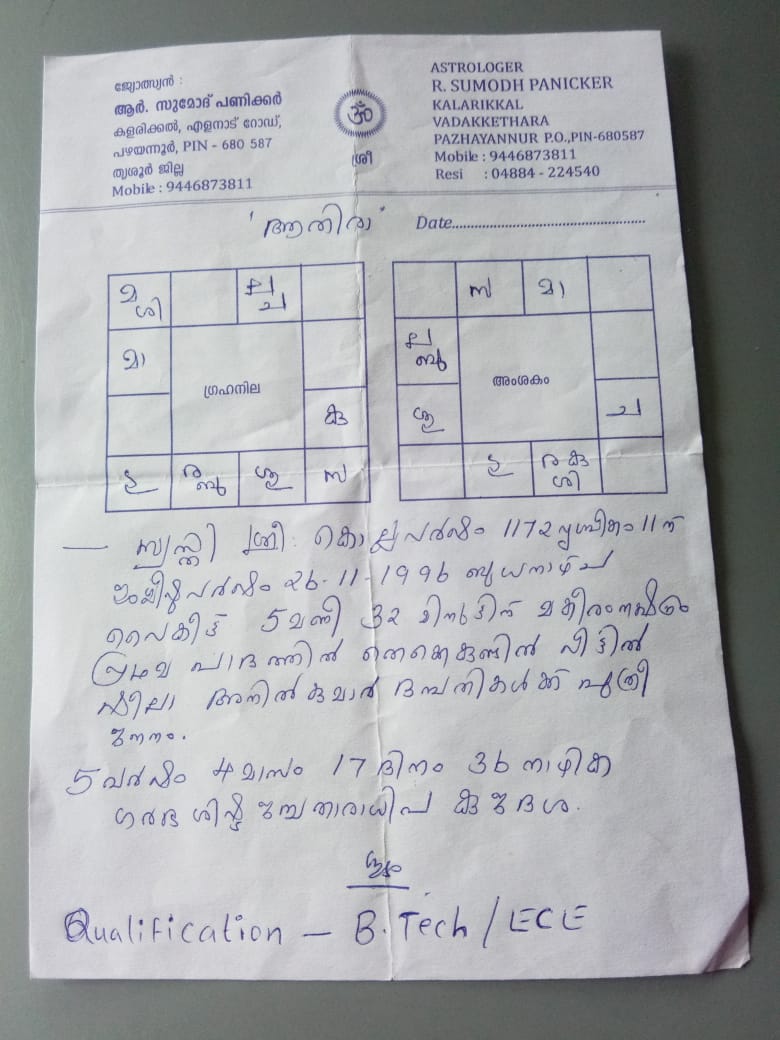 ജ്യോത്സ്യൻ :
ആർ. സുമോദ് പണിക്കർ
കളരിക്കൽ, എളനാട് റോഡ്,
പഴയന്നൂർ, PIN - 680 587
തൃശൂർ ജില്ല
Mobile : 9446873811
ശ്രീ
ASTROLOGER
R. SUMODH PANICKER
KALARIKKAL
VADAKKETHARA
PAZHAYANNUR P.O.,PIN-680587
Mobile : 9446873811
Resi : 04884 - 224540
' ആതിര '
Date
മ ശി
ല ച
മാ
ഗ്രഹനില
കു
ഗു
ര ബു
ശു
സ
സ മാ
ല ബു
അംശകം
ശു
ച
ഗു
ര കു ശി
— സ്വസ്തി ശ്രീ : കൊല്ലവർഷം 1172 വൃശ്ചികം 11 ന്
ഇംഗ്ലീഷ് വർഷം 26-11-1996 ബുധനാഴ്ച
വൈകീട്ട് 5 മണി 32 മിനുട്ടിന് മകീരം നക്ഷത്രം
പ്രഥമ പാദത്തിൽ വീട്ടിൽ
ഷീലാ അനിൽകുമാർ ദമ്പതികൾക്ക് പുത്രീ
ജനനം.
5 വർഷം 4 മാസം 17 ദിനം 36 നാഴിക
ഗർഭശിഷ്ട ജന്മതാരാധിപ കുജദശ.
ശുഭം
Qualification — B.Tech / ECE